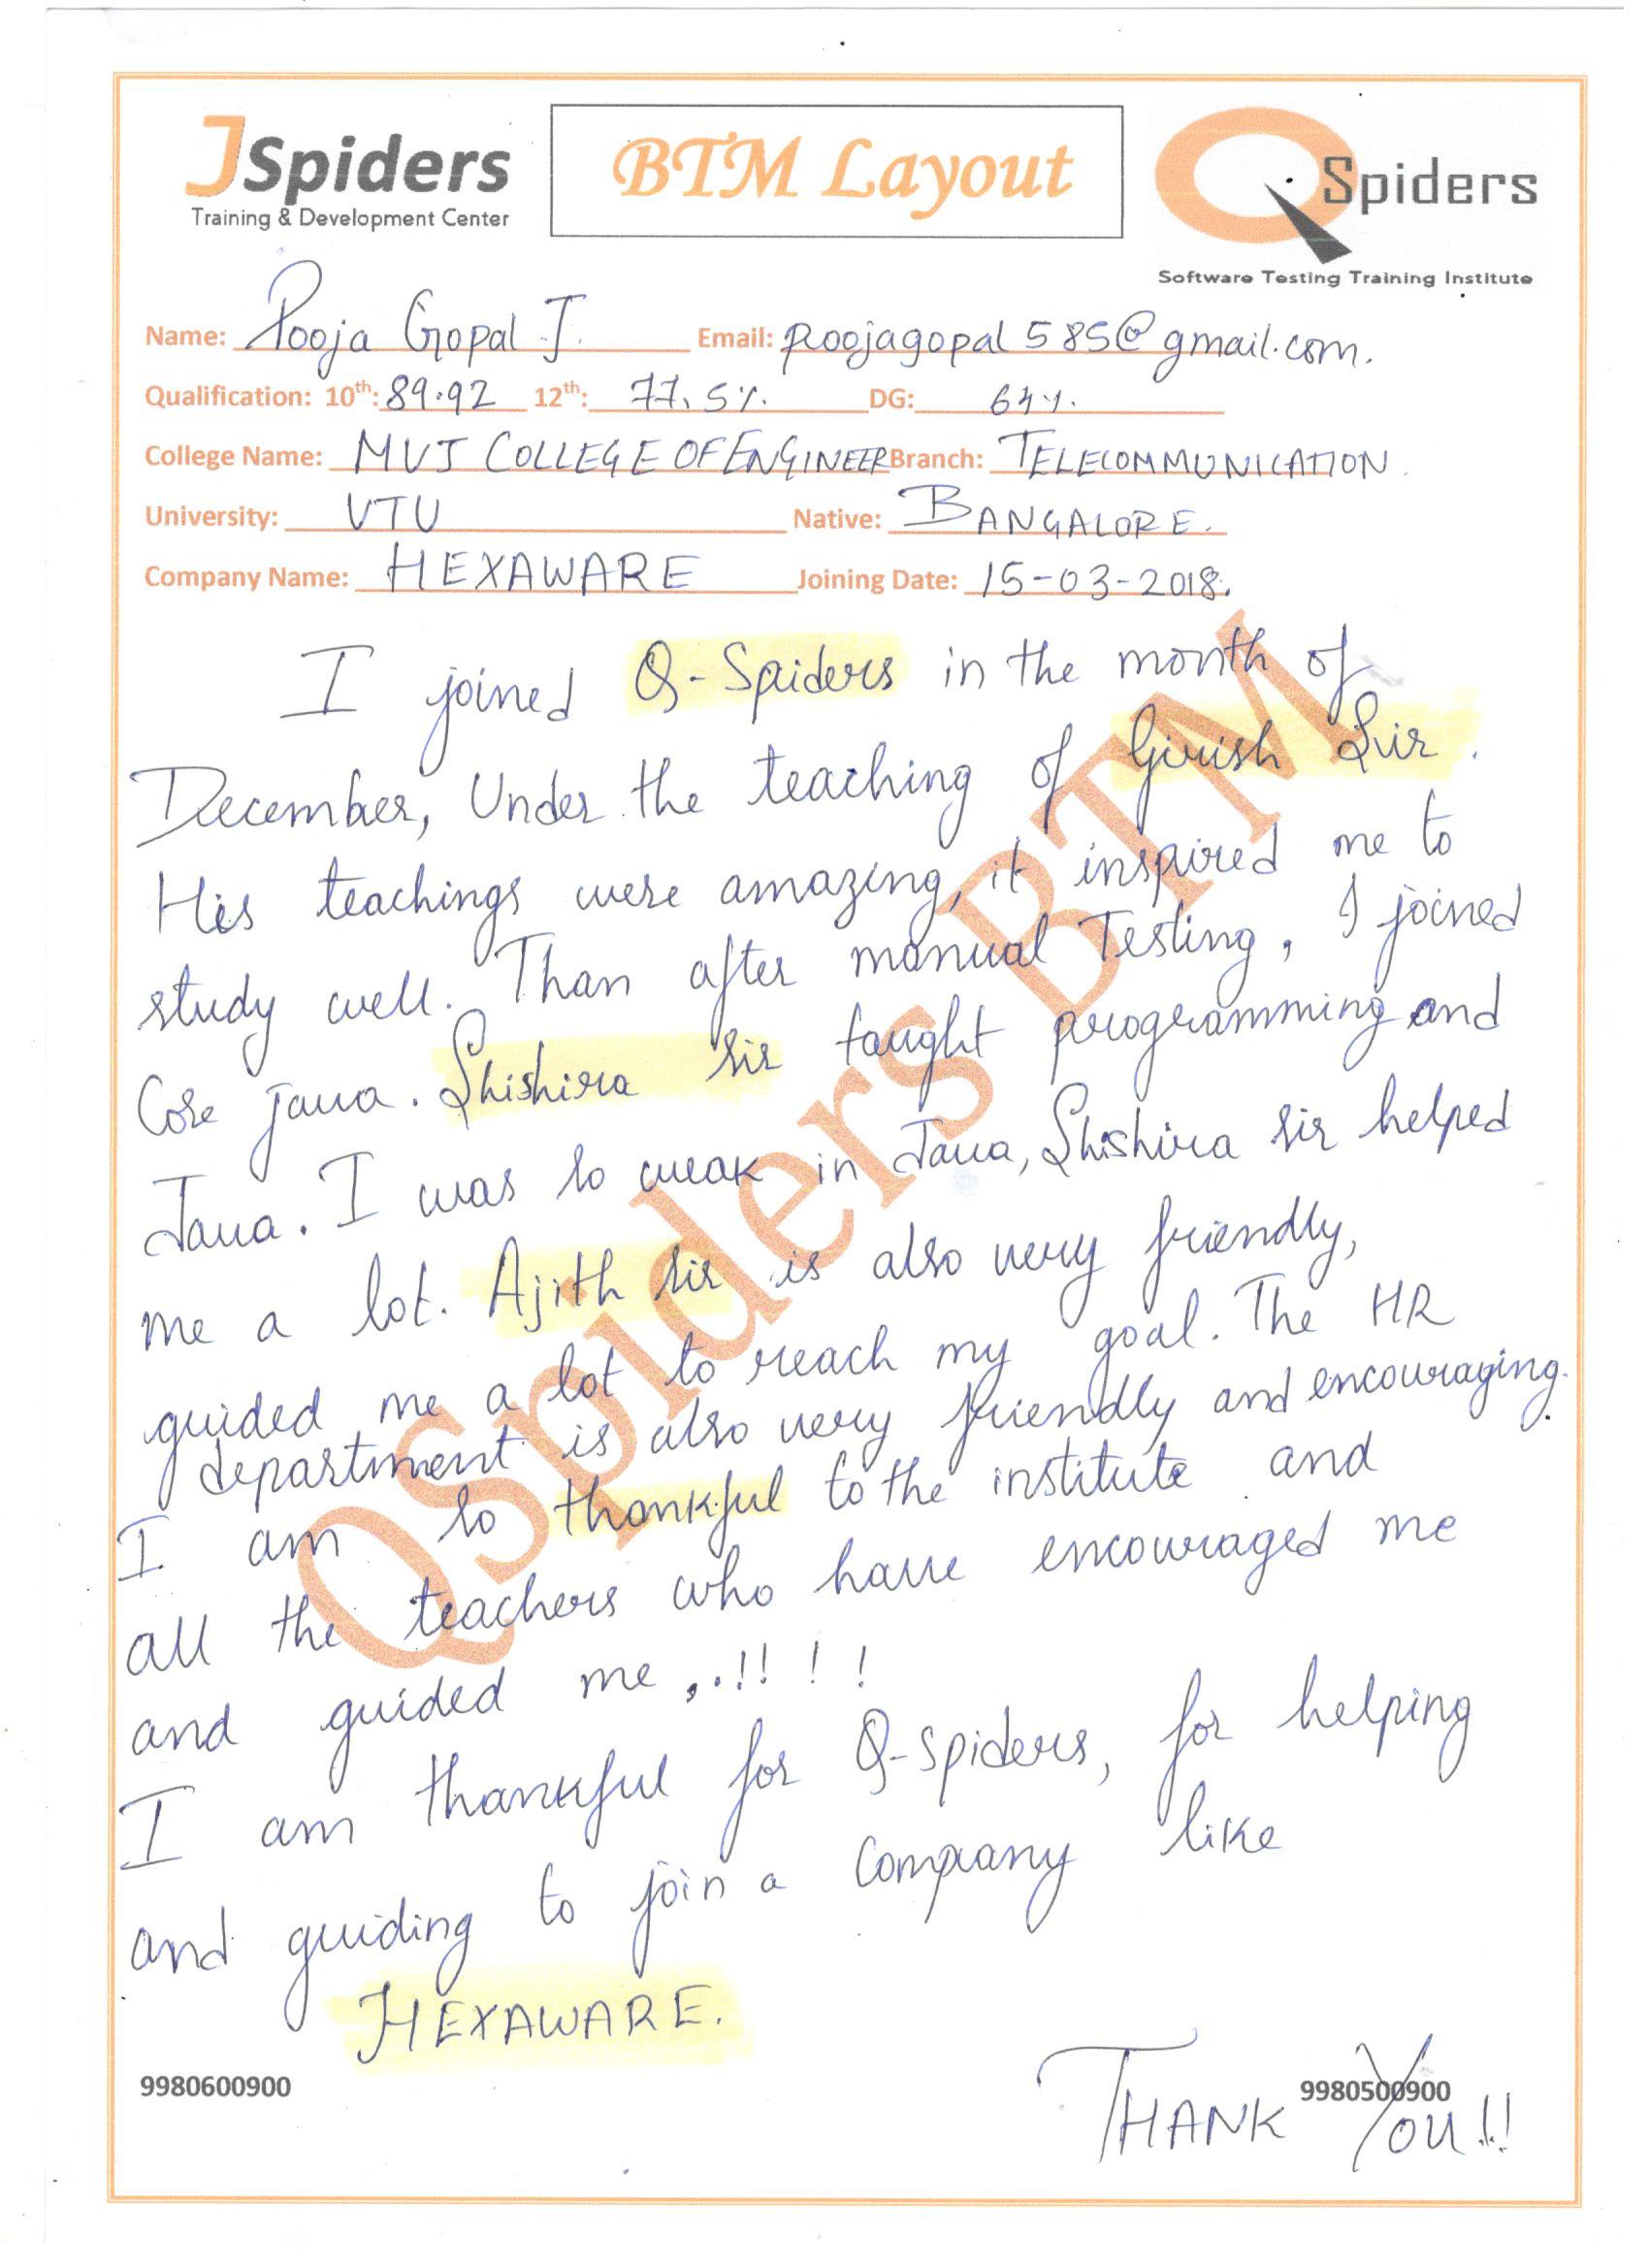 JSpiders
Training & Development Center
BTM Layout
QSpiders
Software Testing Training Institute
Name: Pooja Gopal J. Email: poojagopal585@gmail.com.
Qualification: 10th: 89.92 12th: 77.5% DG: 64%.
College Name: MVJ COLLEGE OF ENGINEER Branch: TELECOMMUNICATION.
University: VTU Native: BANGALORE.
Company Name: HEXAWARE Joining Date: 15-03-2018.
I joined Q-Spiders in the month of
December, Under the teaching of Girish Sir.
His teachings were amazing, it inspired me to
study well. Than after manual Testing, I joined
Core java. Shishira sir taught programming and
Java. I was so weak in Java, Shishira sir helped
me a lot. Ajith sir is also very friendly,
guided me a lot to reach my goal. The HR
department is also very friendly and encouraging.
I am so thankful to the institute and
all the teachers who have encouraged me
and guided me,..!! ! !
I am thankful for Q-Spiders, for helping
and guiding to join a Company like
HEXAWARE.
QSpiders BTM
9980600900 9980500900
THANK YOU!!